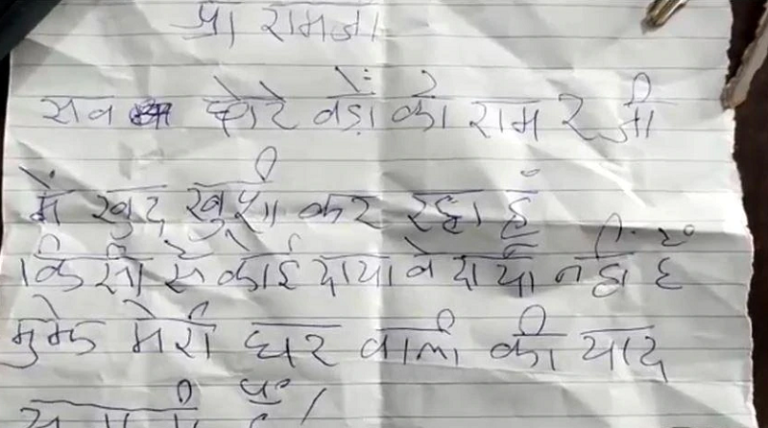 श्री रामजी
सब छोटे बड़ो को राम २ जी
मैं खुद खुशी कर रहा हूँ
किसी से कोई दाया वे दाया नहीं है
मुझे मेरी घर वाली की याद